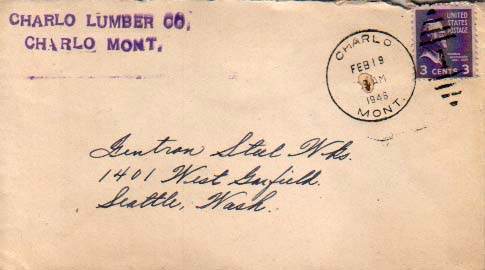 CHARLO LUMBER CO.
CHARLO MONT.
CHARLO
FEB 19
AM
1946
MONT.
UNITED
STATES
POSTAGE
3 CENTS 3
Gentron Steel Wks.
1401 West Garfield.
Seattle, Wash.